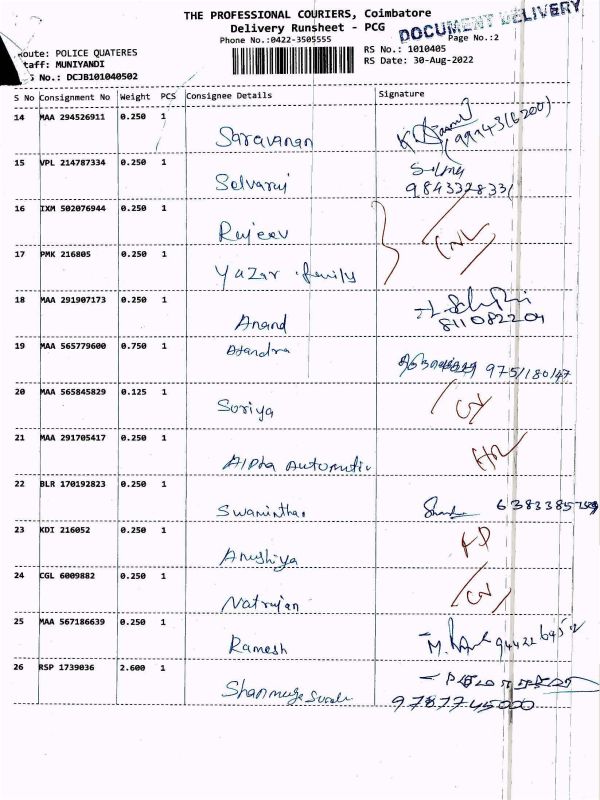 THE PROFESSIONAL COURIERS, Coimbatore
Delivery Runsheet - PCG
DOCUMENT DELIVERY
Phone No.:0422-3505555
Page No.:2
Route: POLICE QUATERES
RS No.: 1010405
Staff: MUNIYANDI
RS Date: 30-Aug-2022
S No.: DCJB101040502
S No Consignment No Weight PCS Consignee Details Signature
14 MAA 294526911 0.250 1
Saravanan
15 VPL 214787334 0.250 1
Selvaraj 984332833
16 IXM 502076944 0.250 1
Rajeev
17 PMK 216805 0.250 1
Yazar family
18 MAA 291907173 0.250 1
Anand 811082204
19 MAA 565779600 0.750 1
975/180/47
20 MAA 565845829 0.125 1
Soriya
21 MAA 291705417 0.250 1
Alpha
22 BLR 170192823 0.250 1
23 KDI 216052 0.250 1
Anushiya
24 CGL 6009882 0.250 1
Natrajan
25 MAA 567186639 0.250 1
Ramesh
26 RSP 1739036 2.600 1
9787745000